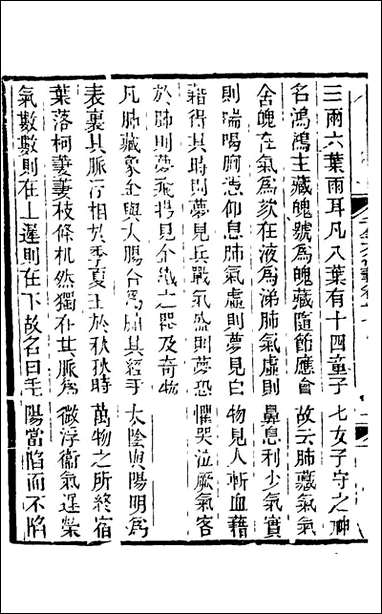 三兩六葉兩耳凡八葉有十四童子七女子守之神
名鴻鴻主藏魄號為魄藏隨節應會故云肺藏氣氣
舍魄在氣為欬在液為涕肺氣虛則鼻息利少氣實
則喘喝胸憑仰息肺氣虛則夢見白物見人斬血藉
藉得其時則夢見兵戰氣盛則夢恐懼哭泣厥氣客
於肺則夢飛揚見金鐵之器及奇物
凡肺藏象金與大腸合為腑其經手太陰與陽明為
表裏其脈浮相於季夏王於秋秋時萬物之所終宿
葉落柯萋萋枝條杌然獨在其脈為微浮衞氣遲榮
氣數數則在上遲則在下故名曰毛陽當陷而不陷